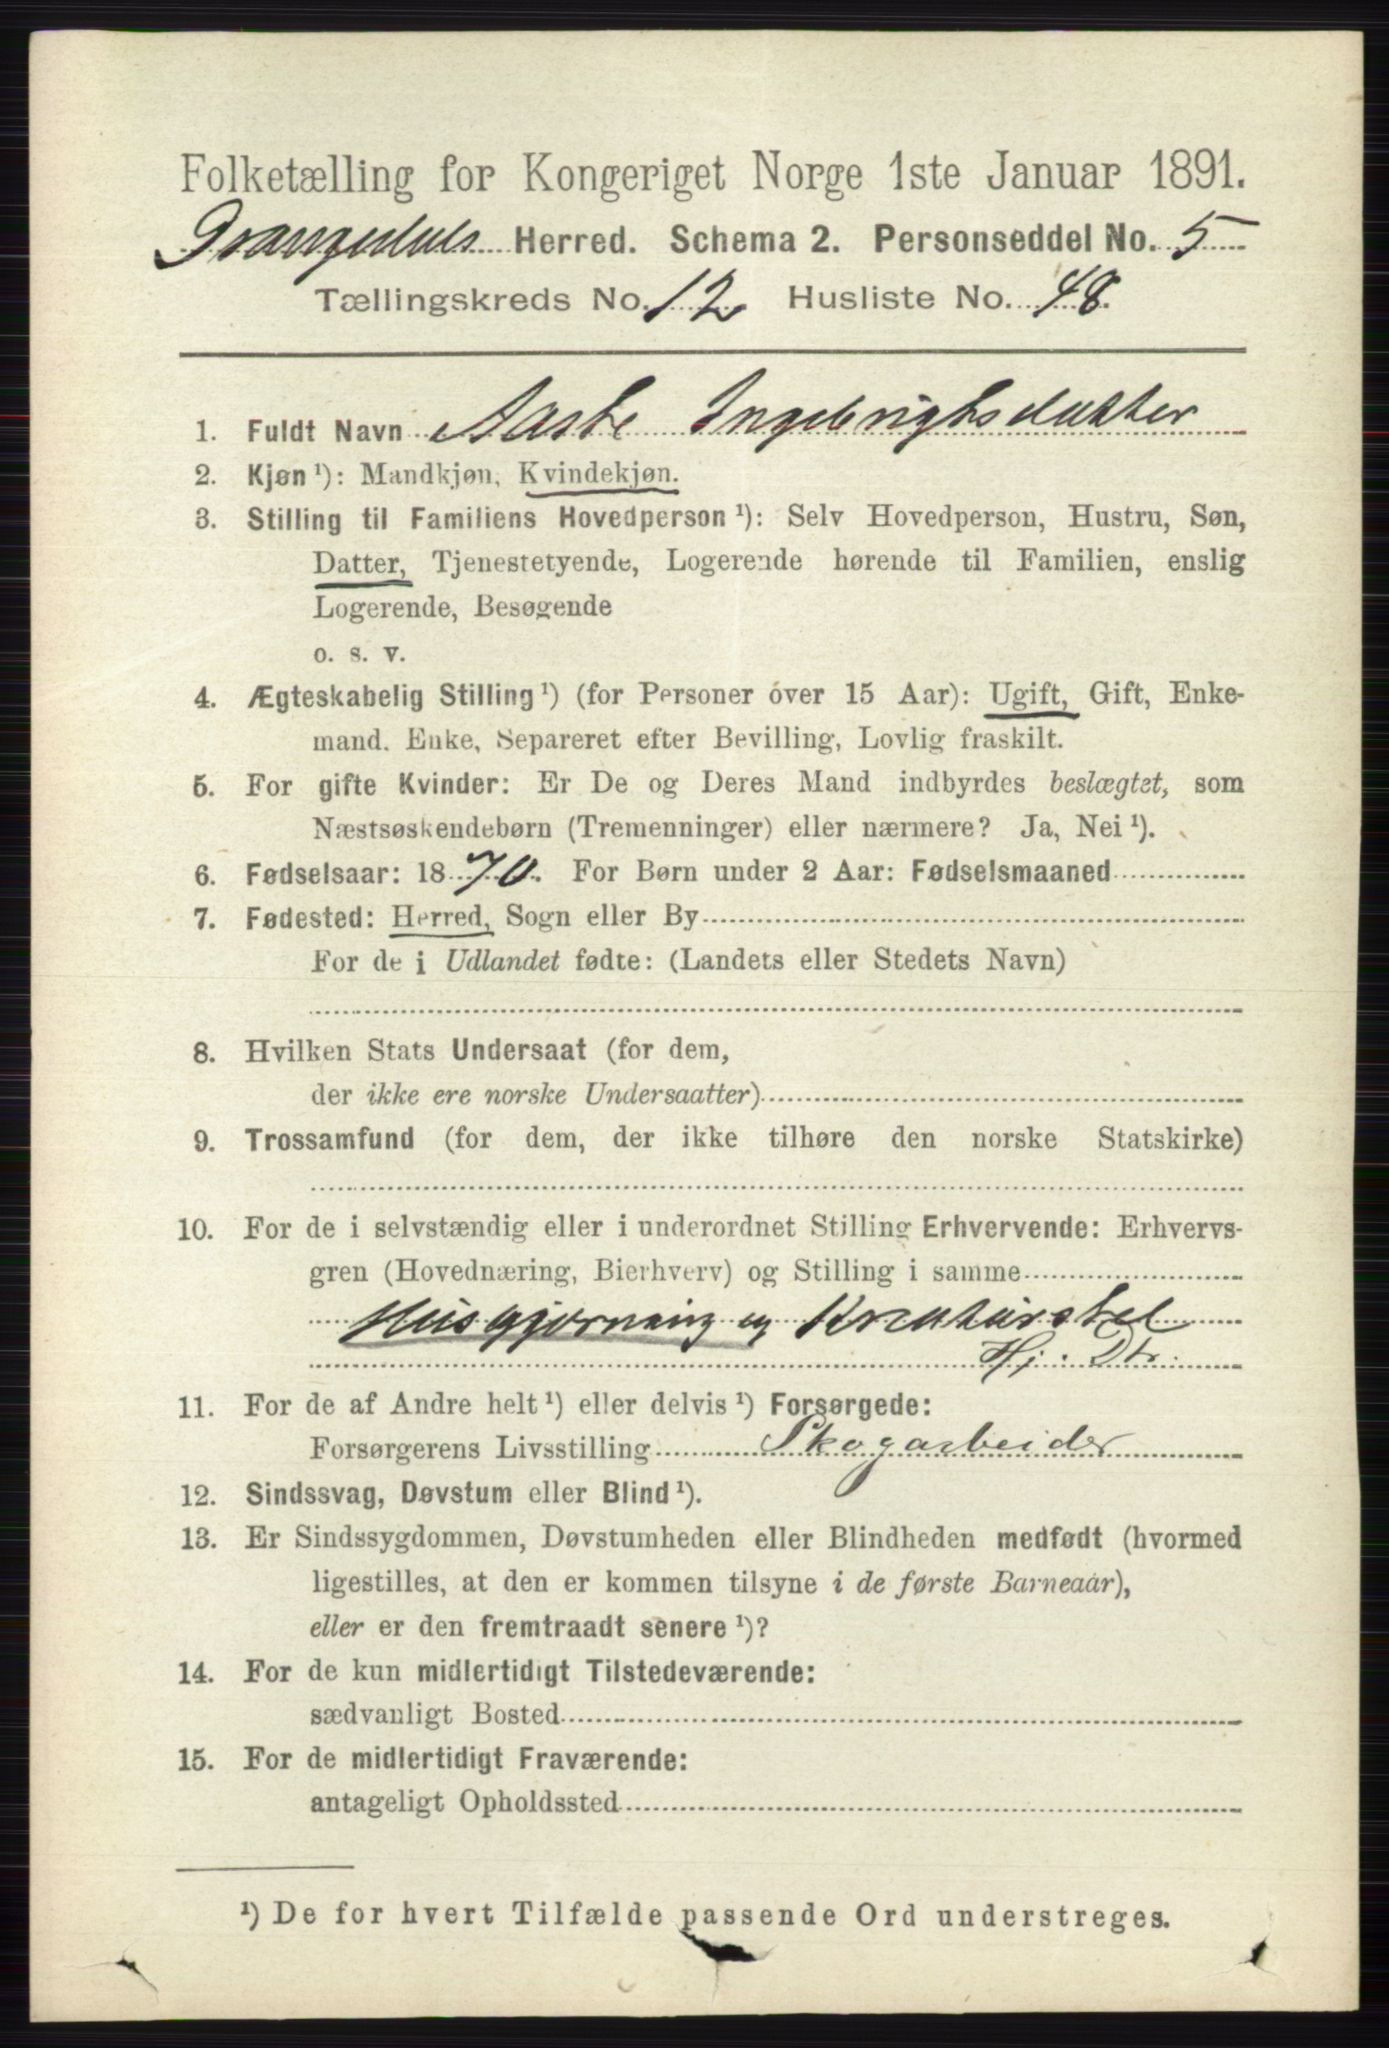 Folketælling for Kongeriget Norge 1ste Januar 1891.
Drangedals Herred. Schema 2. Personseddel No. 5
Tællingskreds No. 12 Husliste No. 48.
1. Fuldt Navn Aaste Ingebrigtsdatter
2. Kjøn ¹): Mandkjøn, Kvindekjøn.
3. Stilling til Familiens Hovedperson ¹): Selv Hovedperson, Hustru, Søn,
Datter, Tjenestetyende, Logerende hørende til Familien, enslig
Logerende, Besøgende
o. s. v.
4. Ægteskabelig Stilling ¹) (for Personer over 15 Aar): Ugift, Gift, Enke-
mand. Enke, Separeret efter Bevilling, Lovlig fraskilt.
5. For gifte Kvinder: Er De og Deres Mand indbyrdes beslægtet, som
Næstsøskendebørn (Tremenninger) eller nærmere? Ja, Nei ¹).
6. Fødselsaar: 1870. For Børn under 2 Aar: Fødselsmaaned
7. Fødested: Herred, Sogn eller By
For de i Udlandet fødte: (Landets eller Stedets Navn)
8. Hvilken Stats Undersaat (for dem,
der ikke ere norske Undersaatter)
9. Trossamfund (for dem, der ikke tilhøre den norske Statskirke)
10. For de i selvstændig eller i underordnet Stilling Erhvervende: Erhvervs-
gren (Hovednæring, Bierhverv) og Stilling i samme
Husgjerning og Kreaturstel
Hj. Dtr.
11. For de af Andre helt ¹) eller delvis ¹) Forsørgede:
Forsørgerens Livsstilling Skogarbeider
12. Sindssvag, Døvstum eller Blind ¹).
13. Er Sindssygdommen, Døvstumheden eller Blindheden medfødt (hvormed
ligestilles, at den er kommen tilsyne i de første Barneaar),
eller er den fremtraadt senere ¹)?
14. For de kun midlertidigt Tilstedeværende:
sædvanligt Bosted
15. For de midlertidigt Fraværende:
antageligt Opholdssted
¹) De for hvert Tilfælde passende Ord understreges.